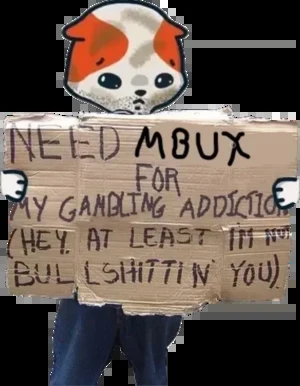 NEED MBUX
FOR
MY GAMBLING ADDICTION
(HEY. AT LEAST I'M NOT
BULLSHITTIN' YOU)